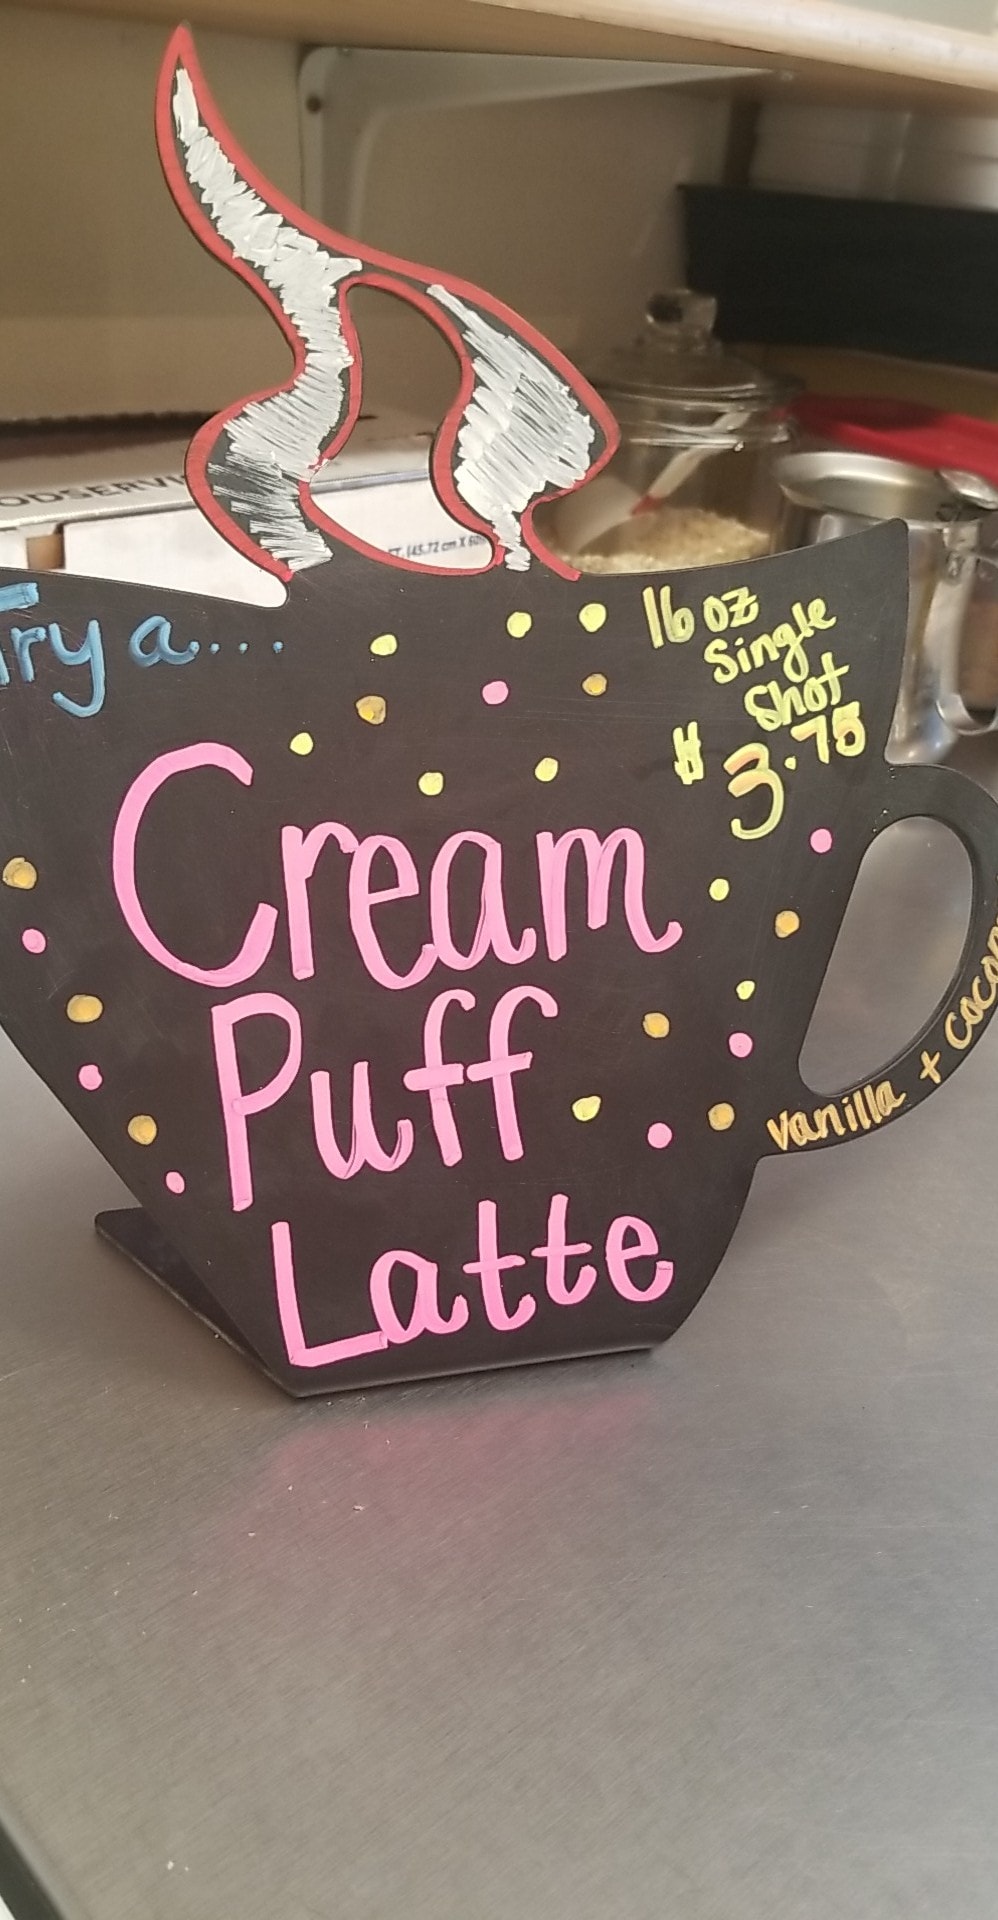 Try a...
16 oz
Single
Shot
$ 3.75
Cream
Puff
Latte
vanilla +
ODSERVI
FT. (45.72 cm X 60